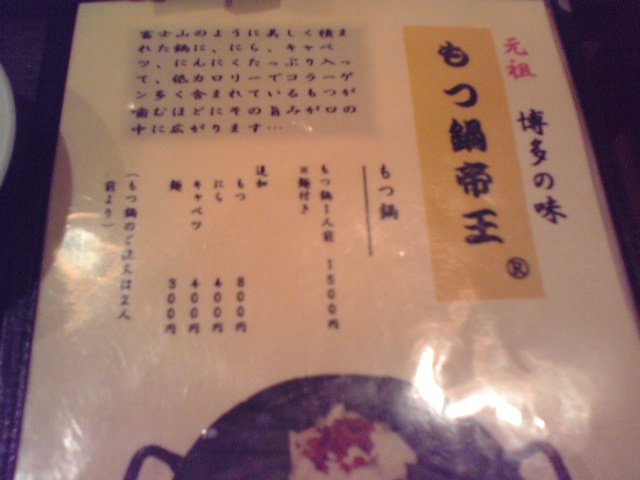 元祖
博多の味
もつ鍋帝王
®
富士山のように美しく積ま
れた鍋に、にら、キャベ
ツ、にんにくたっぷり入っ
て、低カロリーでコラーゲ
ン多く含まれているもつが
噛むほどにその旨みが口の
中に広がります…
もつ鍋
もつ鍋1人前 1500円
※麺付き
追加
もつ 800円
にら 400円
キャベツ 400円
麺 300円
（もつ鍋のご注文は2人
前より）